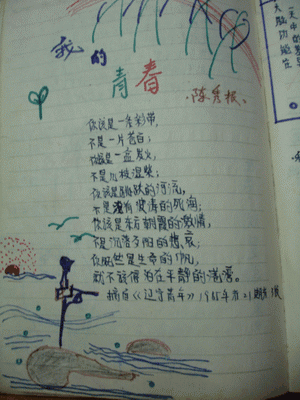 我的
青春
陈彦
你该是一条彩带,
不是一片苍白;
你该是一盆炭火,
不是几枝湿柴;
你该是跳跃的河流,
不是没有波涛的死海;
你该是东方朝霞的激情,
不是沉落夕阳的悲哀;
你既然是生命的帆,
就不该停泊在平静的港湾。
摘自《辽宁青年》1985年第21期